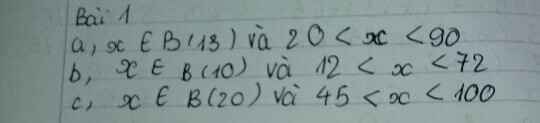 Bài 1
a, x ∈ B(13) và 20 < x < 90
b, x ∈ B(10) và 12 < x < 72
c, x ∈ B(20) và 45 < x < 100